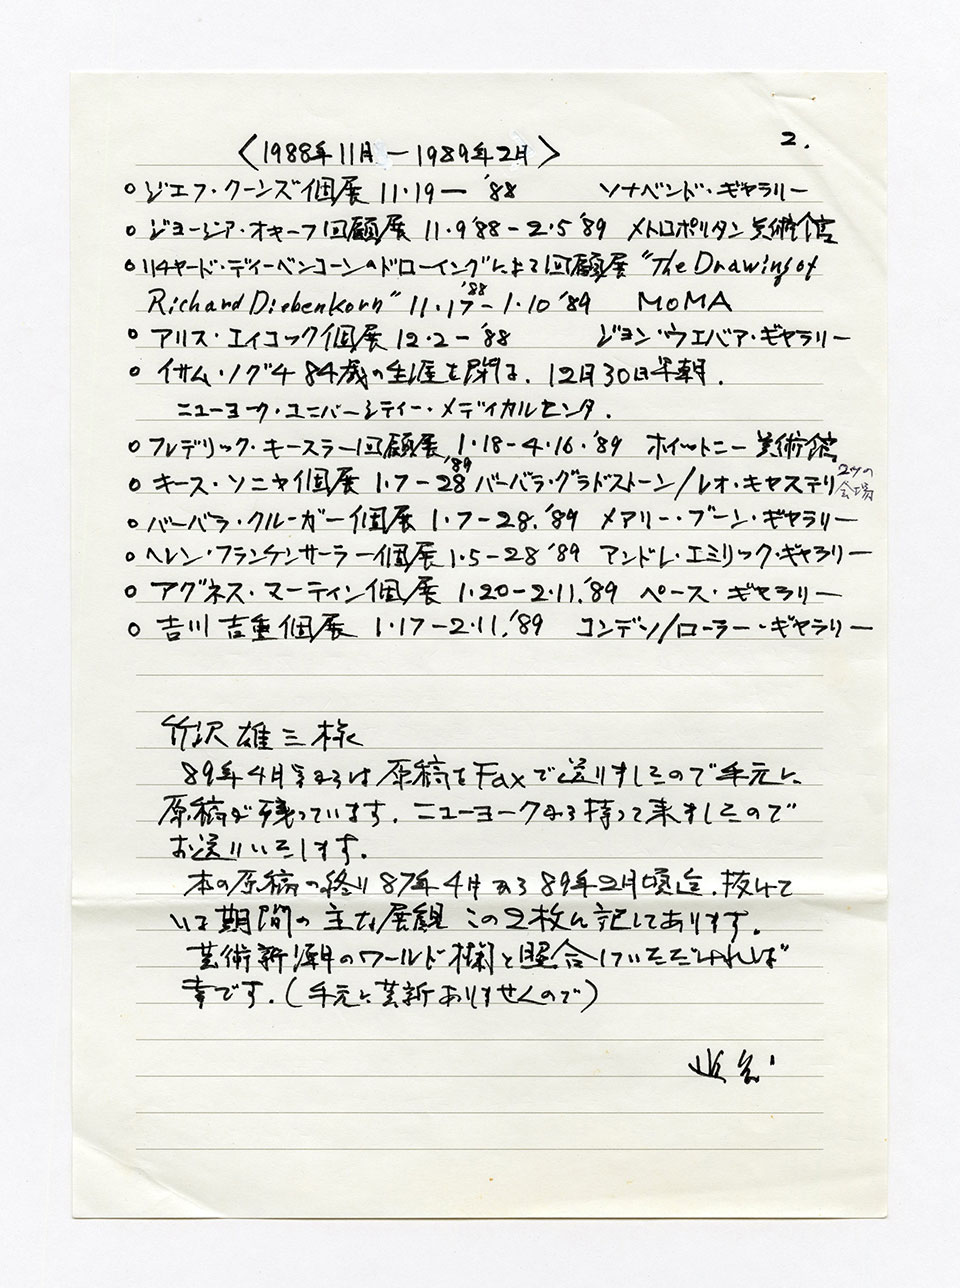 2.
〈1988年11月 — 1989年2月〉
○ ジェフ・クーンズ個展 11・19 — '88 ソナベンド・ギャラリー
○ ジョージア・オキーフ回顧展 11・9 '88 – 2・5 '89 メトロポリタン美術館
○ リチャード・ディーベンコーンのドローイングによる回顧展 "The Drawing of
Richard Diebenkorn" 11・17 '88 – 1・10 '89 MOMA
○ アリス・エイコック個展 12・2 – '88 ジョン・ウエバア・ギャラリー
○ イサム・ノグチ 84歳の生涯を閉る. 12月30日早朝.
ニューヨーク・ユニバーシティー・メディカルセンタ.
○ フレデリック・キースラー回顧展, 1・18 – 4・16・'89 ホイットニー美術館
○ キース・ソニヤ個展 1・7 – 28 '89 バーバラ・グラドストーン/レオ・キャステリ 2つの会場
○ バーバラ・クルーガー個展 1・7 – 28. '89 メアリー・ブーン・ギャラリー
○ ヘレン・フランケンサーラー個展 1・5 – 28 '89 アンドレ・エミリック・ギャラリー
○ アグネス・マーティン個展 1・20 – 2・11. '89 ペース・ギャラリー
○ 吉川 吉重個展 1・17 – 2・11. '89 コンデソ/ローラー・ギャラリー
竹沢雄三様
89年4月号からは原稿をFaxで送りましたので手元に
原稿が残っています. ニューヨークから持って来ましたので
お送りいたします.
本の原稿の終り87年4月から89年2月頃迄. 抜けて
いた期間の主な展観 この2枚に記してあります.
芸術新潮のワールド欄と照合していただければ
幸です. (手元に芸新ありませんので)